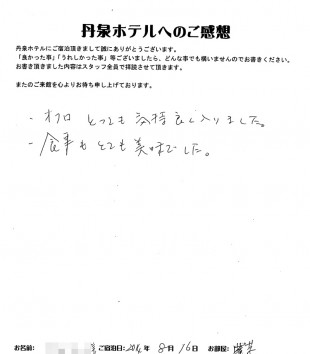 丹泉ホテルへのご感想
丹泉ホテルにご宿泊頂きまして誠にありがとうございます。
「良かった事」「うれしかった事」等ございましたら、どんな事でも構いませんのでお書きください。
お書き頂きました内容はスタッフ全員で拝読させて頂きます。
またのご来館を心よりお待ち申し上げております。
- オフロ とっても気持良く入りました。
- 食事もとても美味でした。
お名前: ご宿泊日: 年 8月 16日 お部屋: